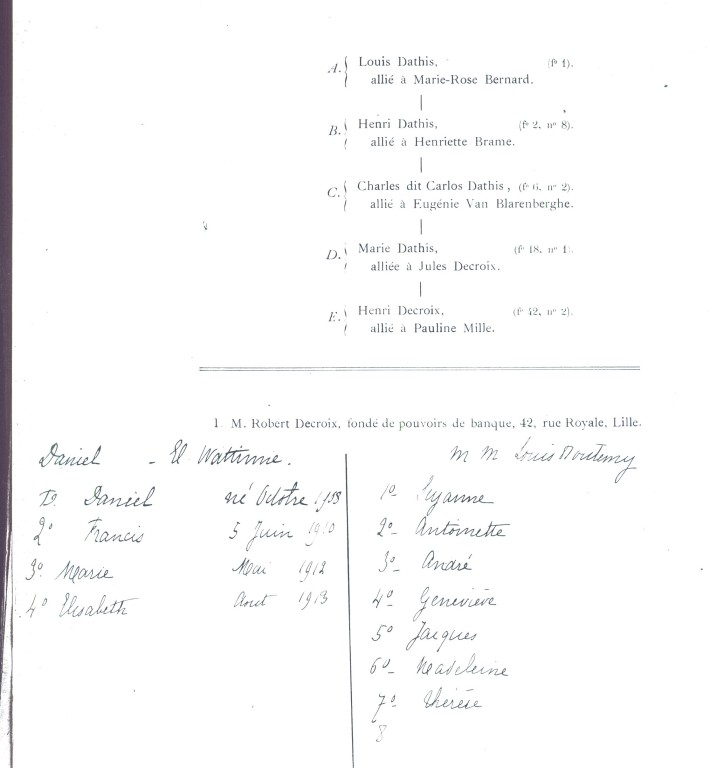 A. Louis Dathis, (fº 1).
allié à Marie-Rose Bernard.
B. Henri Dathis, (fº 2, nº 8).
allié à Henriette Brame.
C. Charles dit Carlos Dathis, (fº 6, nº 2).
allié à Eugénie Van Blarenberghe.
D. Marie Dathis, (fº 18, nº
alliée à Jules Decroix.
E. Henri Decroix, (fº 42, nº 2).
allié à Pauline Mille.
1. M. Robert Decroix, fondé de pouvoirs de banque, 42, rue Royale, Lille.
Daniel - El Wattinne.
1º Daniel né Octobre
2º Francis 5 Juin 1910
3º Marie Mai 1912
4º Elisabeth Aout 1913
M M Louis
1º Suzanne
2º Antoinette
3º André
4º Geneviève
5º Jacques
6º Madeleine
7º Thérèse
8